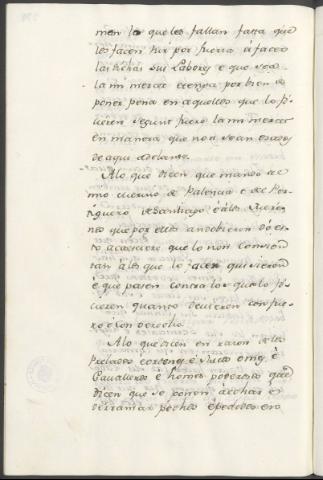 men lo que les fallan fasta que
les facen hir por fuerza a facer
las dichas sus labores e que sea
la mi merced e tenga por bien de
poner pena en aquellos que lo fi-
cieren segunt fuere la mi merced
en manera que non sean osados
de aqui adelante.
A lo que dicen que mando de
mio de Palencia e del Por-
tiguero de Santiago o a los
nos que por ellos andobieren do es-
to acaesciere que lo non consien-
tan a los que lo facer quisieren
e que pasen contra los que lo fi-
cieren quando devieren con fue-
ro e con derecho.
A lo que dicen en razon de los
Prelados ordenes e Ricos omes e
Cavalleros e homes poderosos que
dicen que se ponen a echar e
derramar pechos e pedidos en